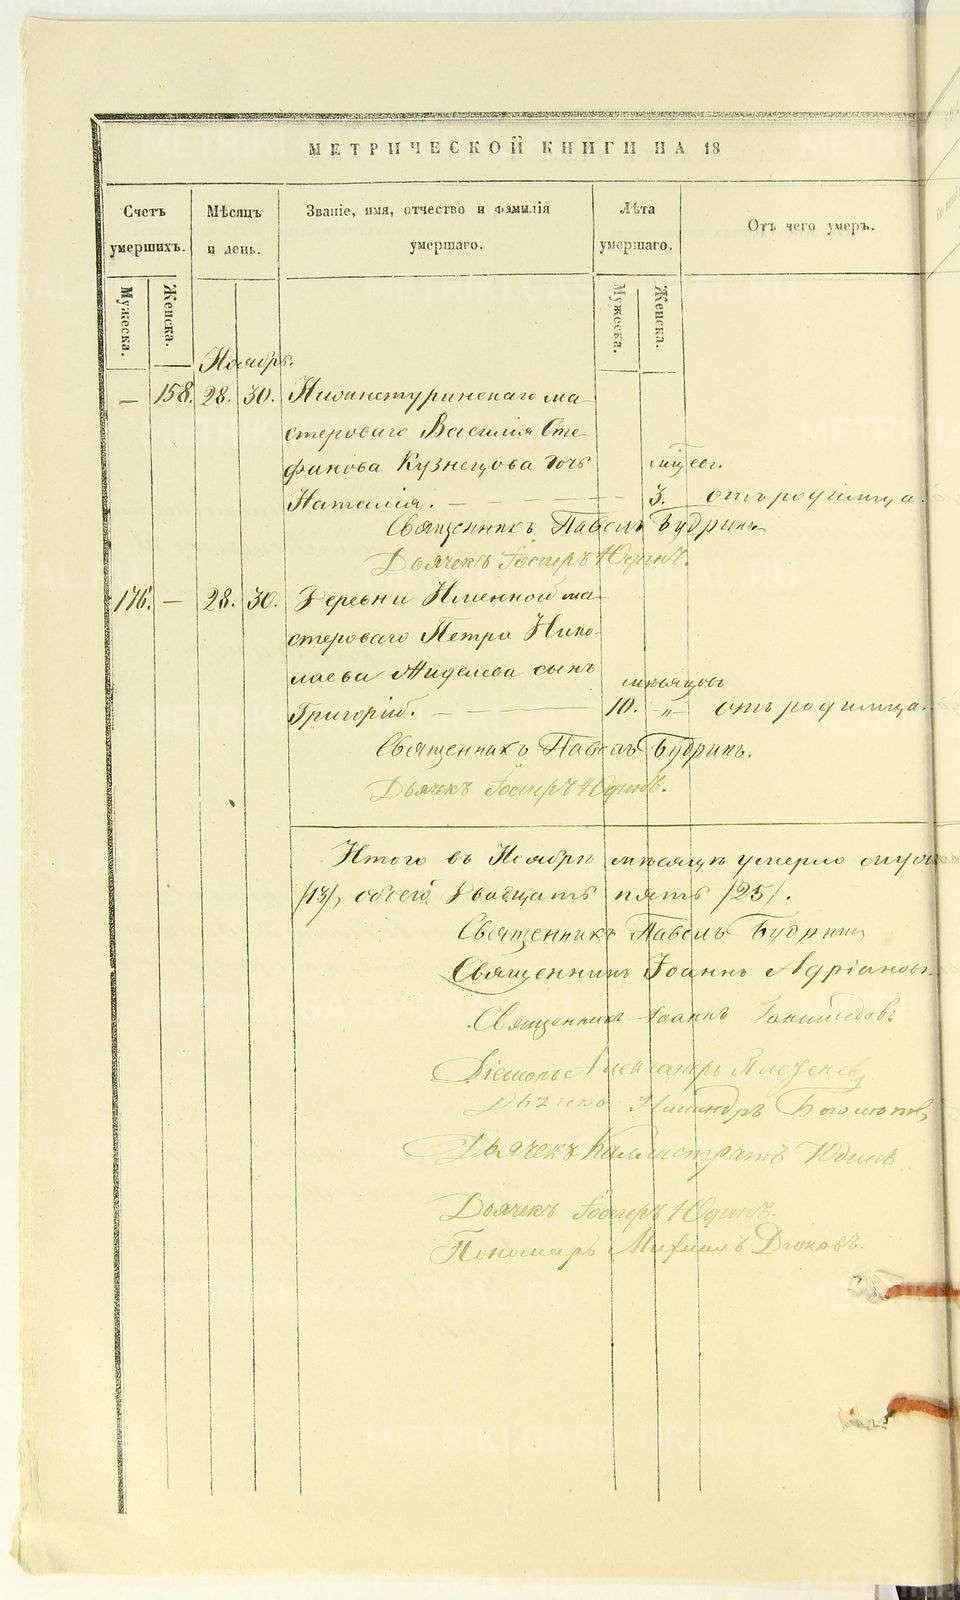 МЕТРИЧЕСКОЙ КНИГИ НА 18
Счетъ умершихъ.
Мѣсяцъ и день.
Званіе, имя, отчество и фамилія умершаго.
Лѣта умершаго.
Отъ чего умеръ.
Мужеска.
Женска.
Мужеска.
Женска.
Ноябрь.
— 158. 28. 30. Нижнетуринскаго ма-
стероваго Василія Сте-
фанова Кузнецова дочь
Наталія. — — — — — 3. отъ родимца.
Священникъ Павелъ Будринъ
Дьячекъ Іосифъ Юдинъ.
176. — 28. 30. Деревни Именной ма-
стероваго Петра Нико-
лаева Жиделева сынъ
мѣсяцовъ
Григорій. — — 10. „ отъ родимца.
Священникъ Павелъ Будринъ.
Дьячекъ Іосифъ Юдинъ.
Итого въ Ноябрѣ мѣсяцѣ умерло муж
/13/, обоего двадцать пять /25/.
Священникъ Павелъ Будринъ
Священникъ Іоаннъ Адріановъ.
Священникъ Іоаннъ
Діаконъ Александръ
Никандръ Богомоловъ
Дьячекъ Каллистратъ Юдинъ
Дьячекъ Іосифъ Юдинъ.
Пономарь Михаилъ Дюковъ.
METRIKI.GASO-URAL.RU